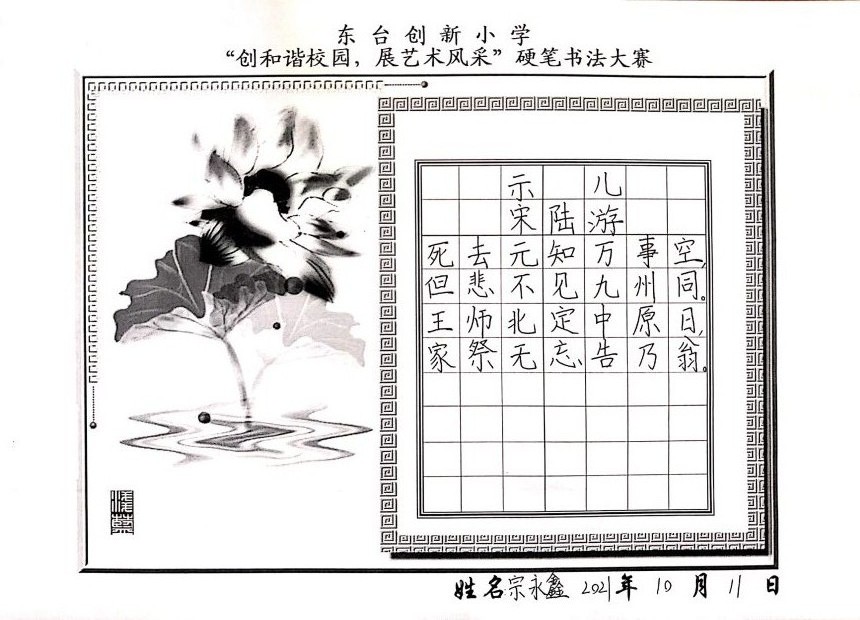 东台创新小学
“创和谐校园，展艺术风采”硬笔书法大赛
示儿
宋陆游
死去元知万事空，
但悲不见九州同。
王师北定中原日，
家祭无忘告乃翁。
姓名宗永鑫 2021年10月11日